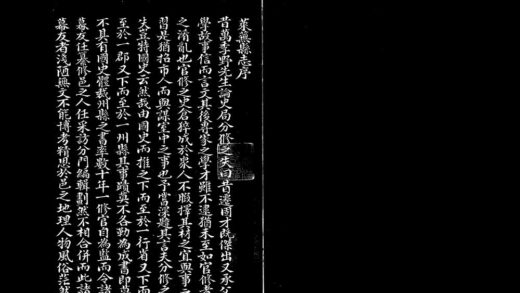 萊蕪縣志序
昔萬季野先生論史局分修之失曰昔遷固才既傑出又承父
學故事信而言文其後專家之學才雖不逮猶未至如官修者
之淆亂也官修之史倉猝成於衆人不暇擇其材之宜與事之
習是猶招市人而與謀室中之事也予嘗深韙其言夫分修之
失豈特國史云然哉由國史而推之下而至於一行省又下而
至於一郡又下而至於一州縣其事蹟莫不各勒為成書即莫
不具有國史體裁州縣之書率數十年一修官自為監而令諸
幕友任纂修邑之人任采訪分門編輯劃然不相合併而此諸
幕友者淺陋無文不能博考精思於邑之地理人物風俗茫然